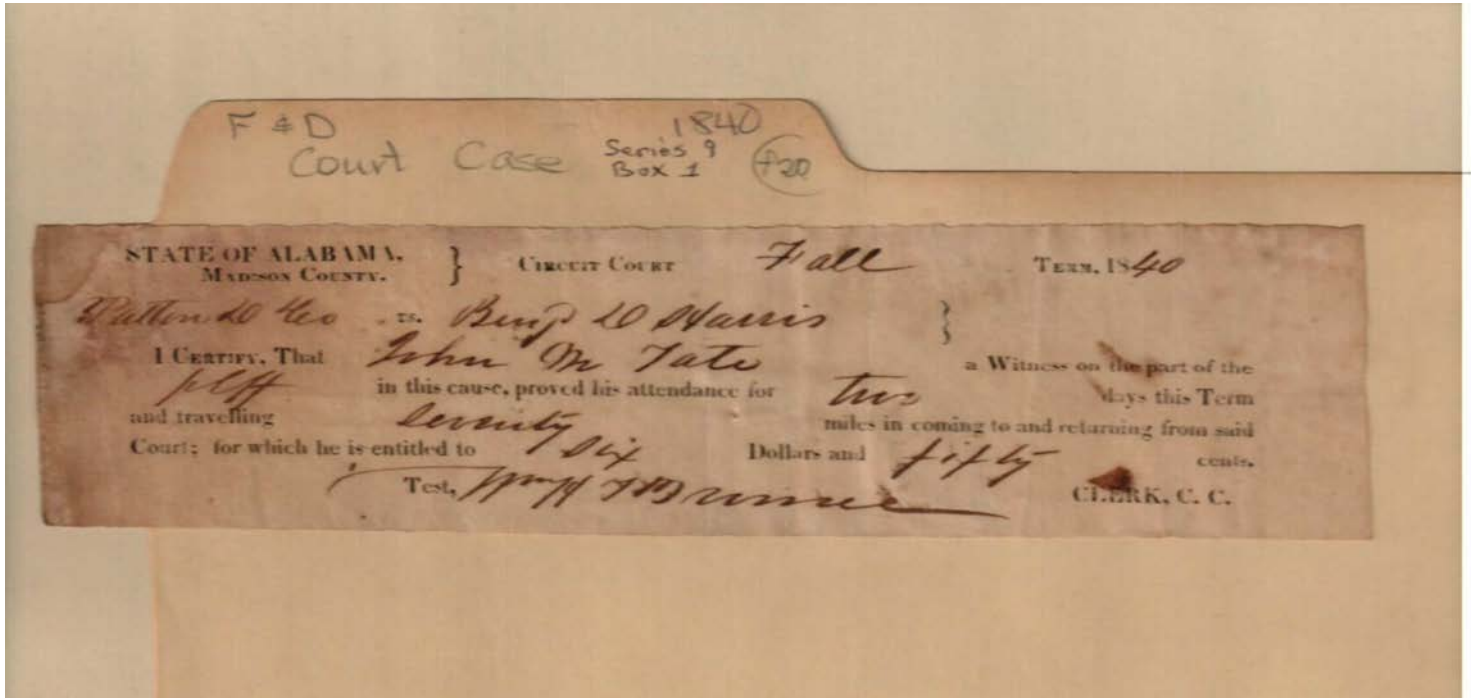 F & D 1840
Court Case Series 9
Box 1 f20
STATE OF ALABAMA, } CIRCUIT COURT Fall TERM, 1840
MADISON COUNTY.
Patton D Geo vs. Benj D Harris }
I CERTIFY, That John M Tate a Witness on the part of the
plff in this cause, proved his attendance for two days this Term
and travelling seventy miles in coming to and returning from said
Court; for which he is entitled to six Dollars and fifty cents.
Test, CLERK, C. C.